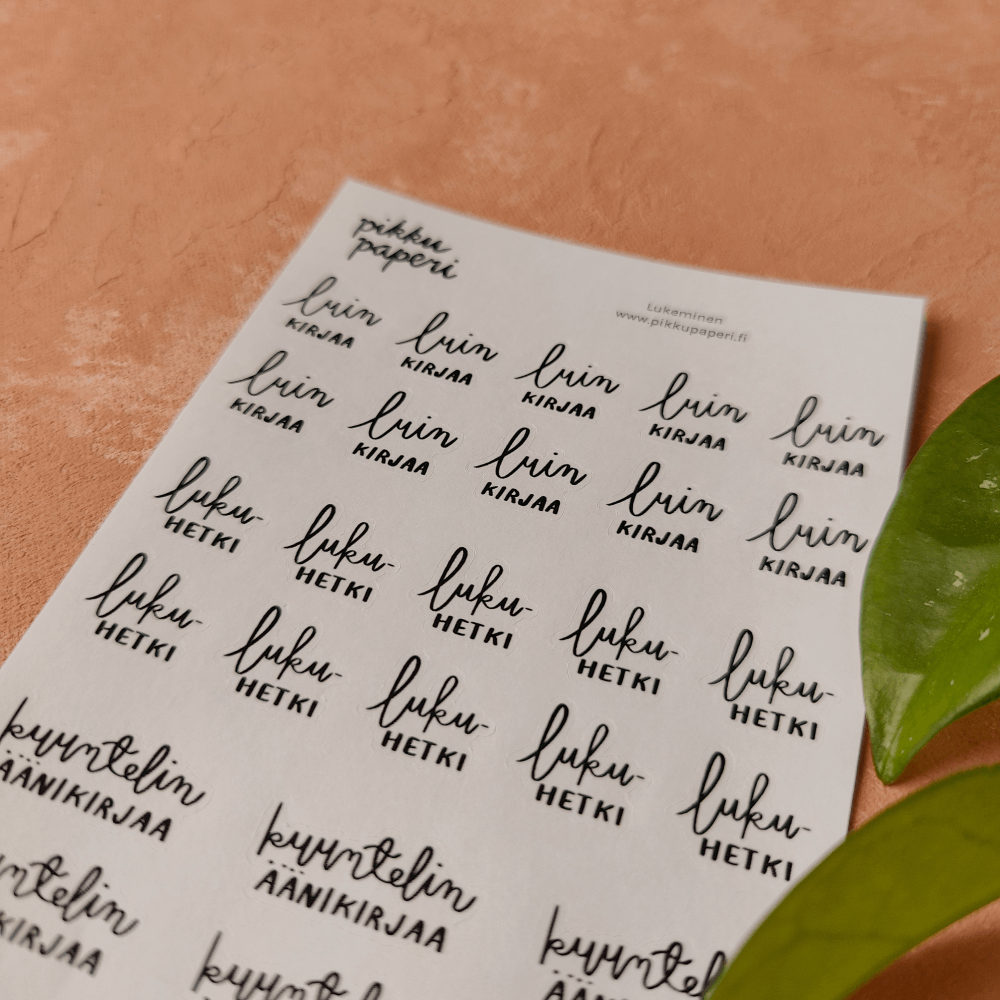 pikku
paperi
Lukeminen
www.pikkupaperi.fi
luin luin luin luin luin
KIRJAA KIRJAA KIRJAA KIRJAA KIRJAA
luin luin luin luin luin
KIRJAA KIRJAA KIRJAA KIRJAA KIRJAA
luku- luku- luku- luku- luku-
HETKI HETKI HETKI HETKI HETKI
luku- luku- luku- luku- luku-
HETKI HETKI HETKI HETKI HETKI
kuuntelin kuuntelin
ÄÄNIKIRJAA ÄÄNIKIRJAA